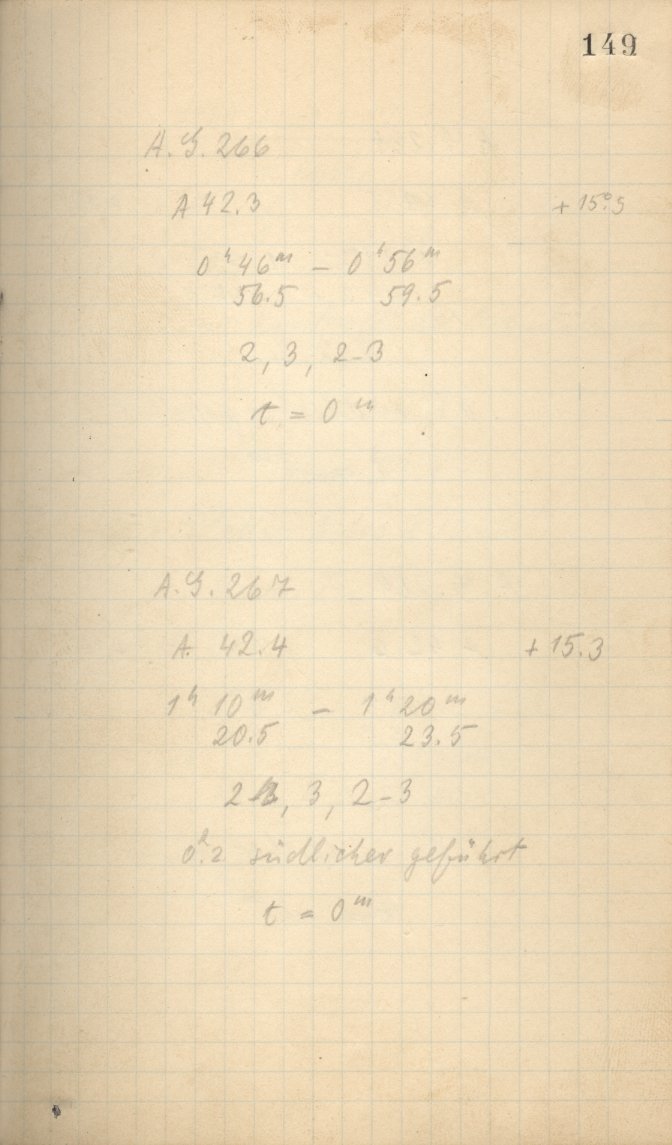 149
A. G. 266
A 42.3 + 15°.5
0ʰ 46ᵐ – 0ʰ 56ᵐ
56.5 59.5
2, 3, 2-3
t = 0ᵐ
A. G. 267
A. 42.4 + 15.3
1ʰ 10ᵐ – 1ʰ 20ᵐ
20.5 23.5
2, 3, 2-3
südlicher geführt
t = 0ᵐ